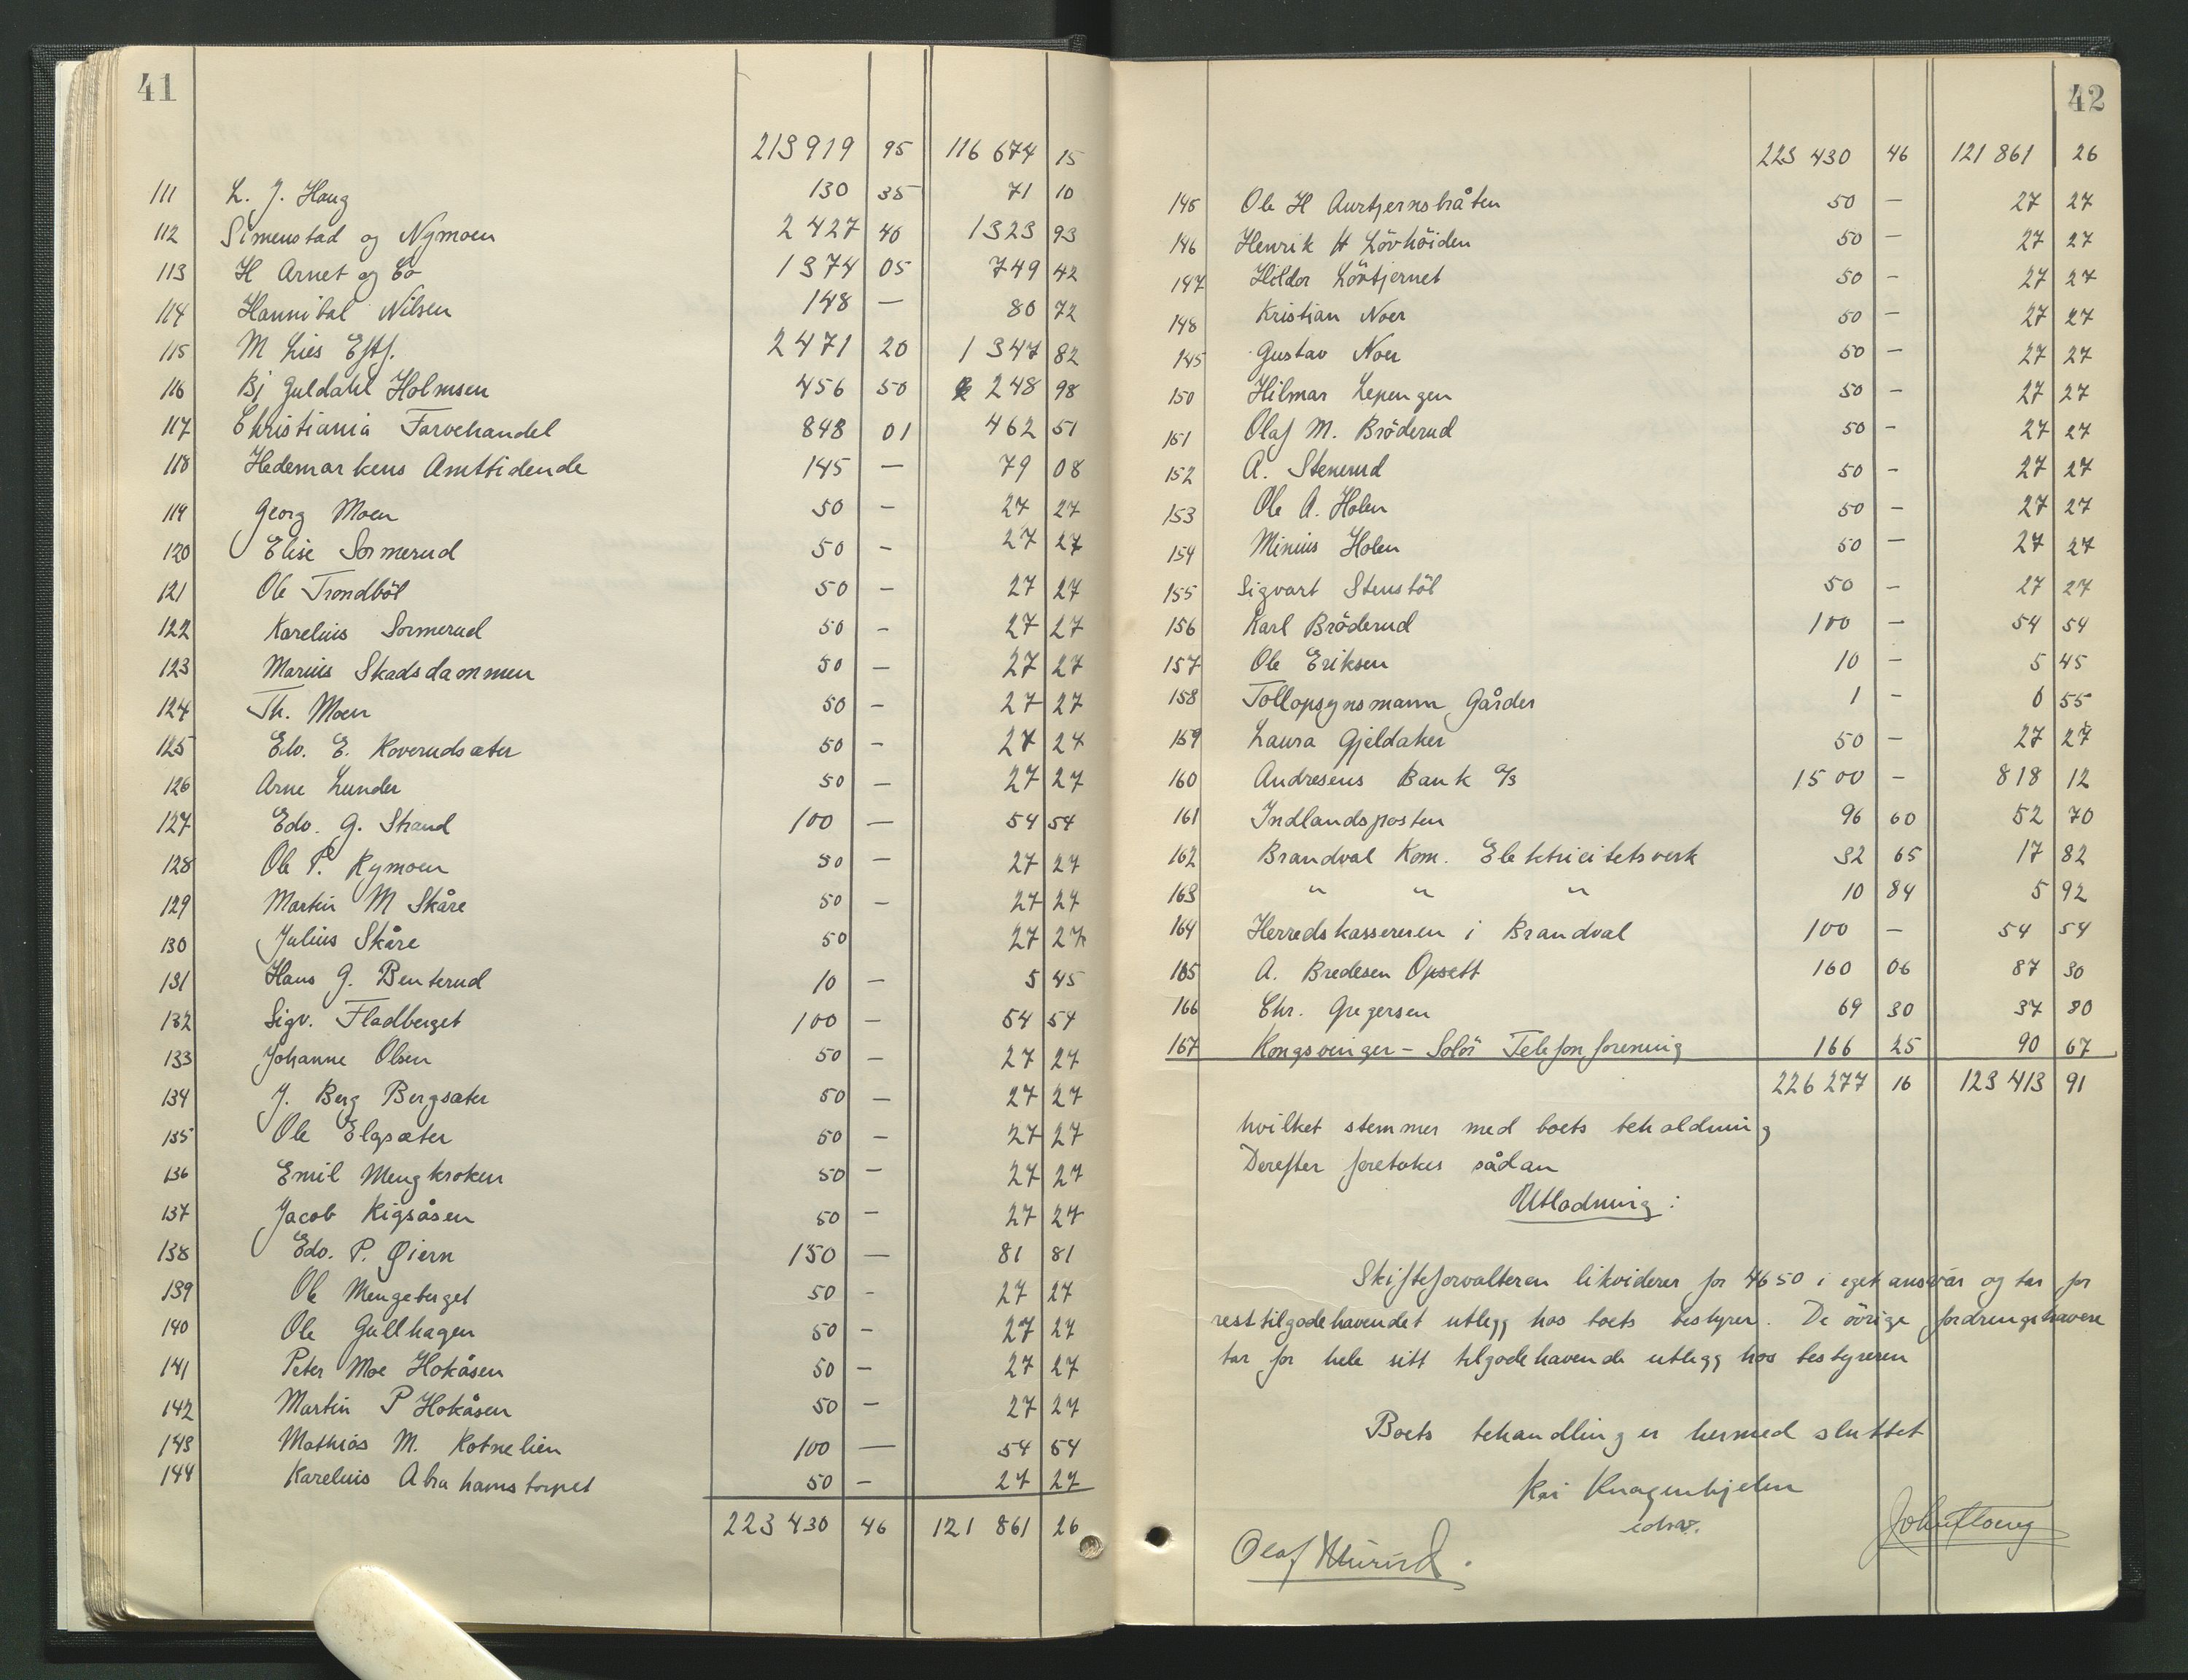 41
213 919 95 116 674 15
111 L. J. Haug 130 35 71 10
112 Simenstad og Nymoen 2 427 40 1 323 93
113 H Arnet og Co 1 374 05 749 42
114 Hannibal Nilsen 148 — 80 72
115 M Lies Eftf. 2 471 20 1 347 82
116 Bj Guldahl Holmsen 456 50 248 98
117 Christiania Farvehandel 848 01 462 51
118 Hedemarkens Amttidende 145 — 79 08
119 Georg Moen 50 - 27 27
120 Elise Sormerud 50 - 27 27
121 Ole Trondböl 50 - 27 27
122 Karelius Sormerud 50 - 27 27
123 Marius Skadsdammen 50 - 27 27
124 Th. Moen 50 - 27 27
125 Edv. E. Roverudsæter 50 - 27 27
126 Arne Lunder 50 - 27 27
127 Edv. G. Strand 100 — 54 54
128 Ole P. Rymoen 50 - 27 27
129 Martin M Skåre 50 - 27 27
130 Julius Skåre 50 27 27
131 Hans G. Benterud 10 - 5 45
132 Sigv. Fladberget 100 - 54 54
133 Johanne Olsen 50 - 27 27
134 J. Berg Bergsæter 50 - 27 27
135 Ole Elgsæter 50 - 27 27
136 Emil Mengkroken 50 - 27 27
137 Jacob Rigsåsen 50 - 27 27
138 Edv. P. Øiern 150 — 81 81
139 Ole Mengeberget 50 - 27 27
140 Ole Gullhagen 50 - 27 27
141 Peter Moe Hokåsen 50 - 27 27
142 Martin P Hokåsen 50 - 27 27
143 Mathias M. Rotnelien 100 — 54 54
144 Karelius Abrahamstorpet 50 - 27 27
223 430 46 121 861 26
42
223 430 46 121 861 26
145 Ole H Aurtjernsbråten 50 - 27 27
146 Henrik H Lövhöiden 50 - 27 27
147 Hildor Lövtjernet 50 - 27 27
148 Kristian Noer 50 - 27 27
145 Gustav Noer 50 - 27 27
150 Hilmar Lepengen 50 - 27 27
151 Olaf M. Bröderud 50 - 27 27
152 A. Stenerud 50 - 27 27
153 Ole A. Holen 50 - 27 27
154 Minius Holen 50 - 27 27
155 Sigvart Stenstöl 50 - 27 27
156 Karl Bröderud 100 - 54 54
157 Ole Eriksen 10 - 5 45
158 Tollopsynsmann Gårder 1 - 0 55
159 Laura Gjeldaker 50 - 27 27
160 Andresens Bank a/s 1500 - 818 12
161 Indlandsposten 96 60 52 70
162 Brandval Kom. Elektricitetsverk 32 65 17 82
163 " " " 10 84 5 92
164 Herredskassereren i Brandval 100 - 54 54
165 A. Bredesen Opsett 160 06 87 30
166 Chr. Gregersen 69 30 37 80
167 Kongsvinger - Solör Telefonforening 166 25 90 67
226 277 16 123 413 91
hvilket stemmer med boets beholdning
Derefter foretokes sådan
Utlodning:
Skifteforvalteren likviderer for 4650 i eget ansvar og tar for
resttilgodehavendet utlegg hos boets bestyrer. De övrige fordringshavere
tar for hele sitt tilgodehavende utlegg hos bestyreren
Boets behandling er hermed sluttet
Kai Knagenhjelm
Olaf